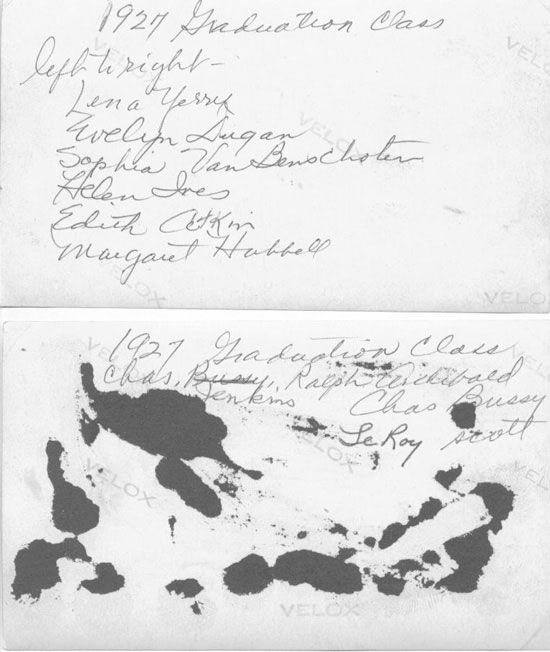 1927 Graduation Class
left to right -
Lena Yerry
Evelyn Dugan
Sophia Van Benschoten
Helen Ives
Edith
Margaret Hubbell
VELOX
VELOX
VELOX
VELOX
1927 Graduation Class
Chas. Bussy, Ralph Archibald
Jenkins Chas Bussy
LeRoy Scott
VELOX
VELOX
VELOX
VELOX